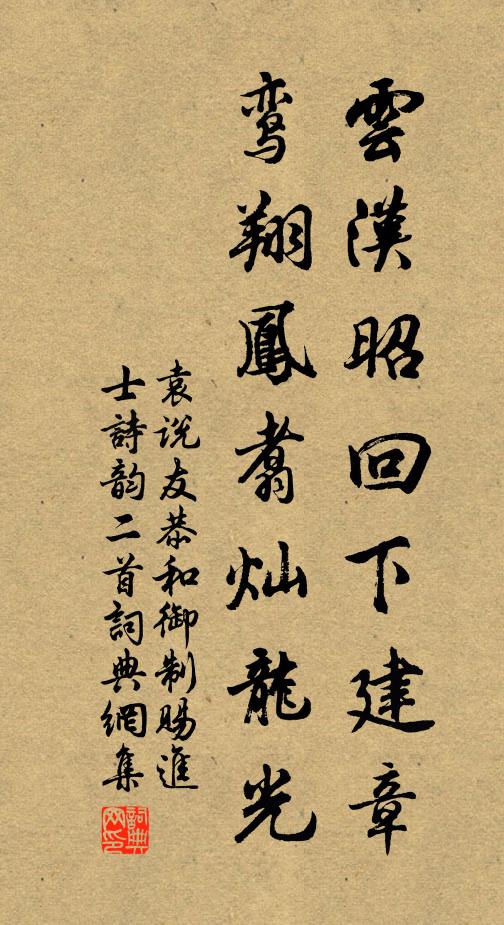 雲漢昭回下建章
鸾翔鳳翥灿龍光
袁说友恭和御制賜進
士詩韵二首詞典網集
詞典
网印